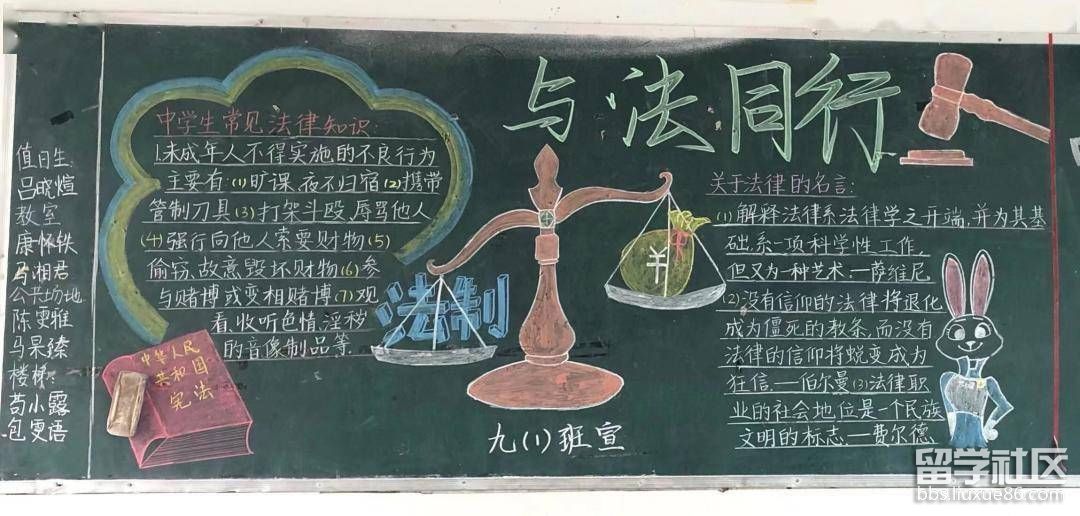 与法同行
值日生:
吕晓煊
教室
康怀轶
马湘君
公共场地
陈雯雅
马果臻
楼梯:
苟小露
包雯语
中学生常见法律知识:
1.未成年人不得实施的不良行为
主要有:(1)旷课、夜不归宿(2)携带
管制刀具(3)打架斗殴、辱骂他人
(4)强行向他人索要财物(5)
偷窃、故意毁坏财物(6)参
与赌博或变相赌博(7)观
看、收听色情、淫秽
的音像制品等
中华人民
共和国
宪法
法制
¥
九(1)班宣
关于法律的名言:
(1)解释法律系法律学之开端,并为其基
础,系一项科学性工作,
但又为一种艺术.—萨维尼
(2)没有信仰的法律将退化
成为僵死的教条,而没有
法律的信仰将蜕变成为
狂信.—伯尔曼(3)法律职
业的社会地位是一个民族
文明的标志.—费尔德
留学社区
bbs.liuxue86.com